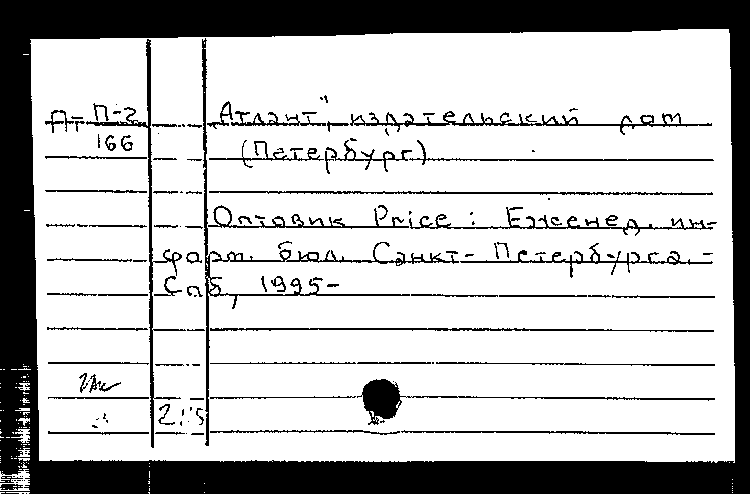 Ат П-2 „Атлант", издательский дом
166 (Петербург)
Оптовик Price : Еженед. ин-
форм. бюл. Санкт-Петербурга. -
Спб, 1995-